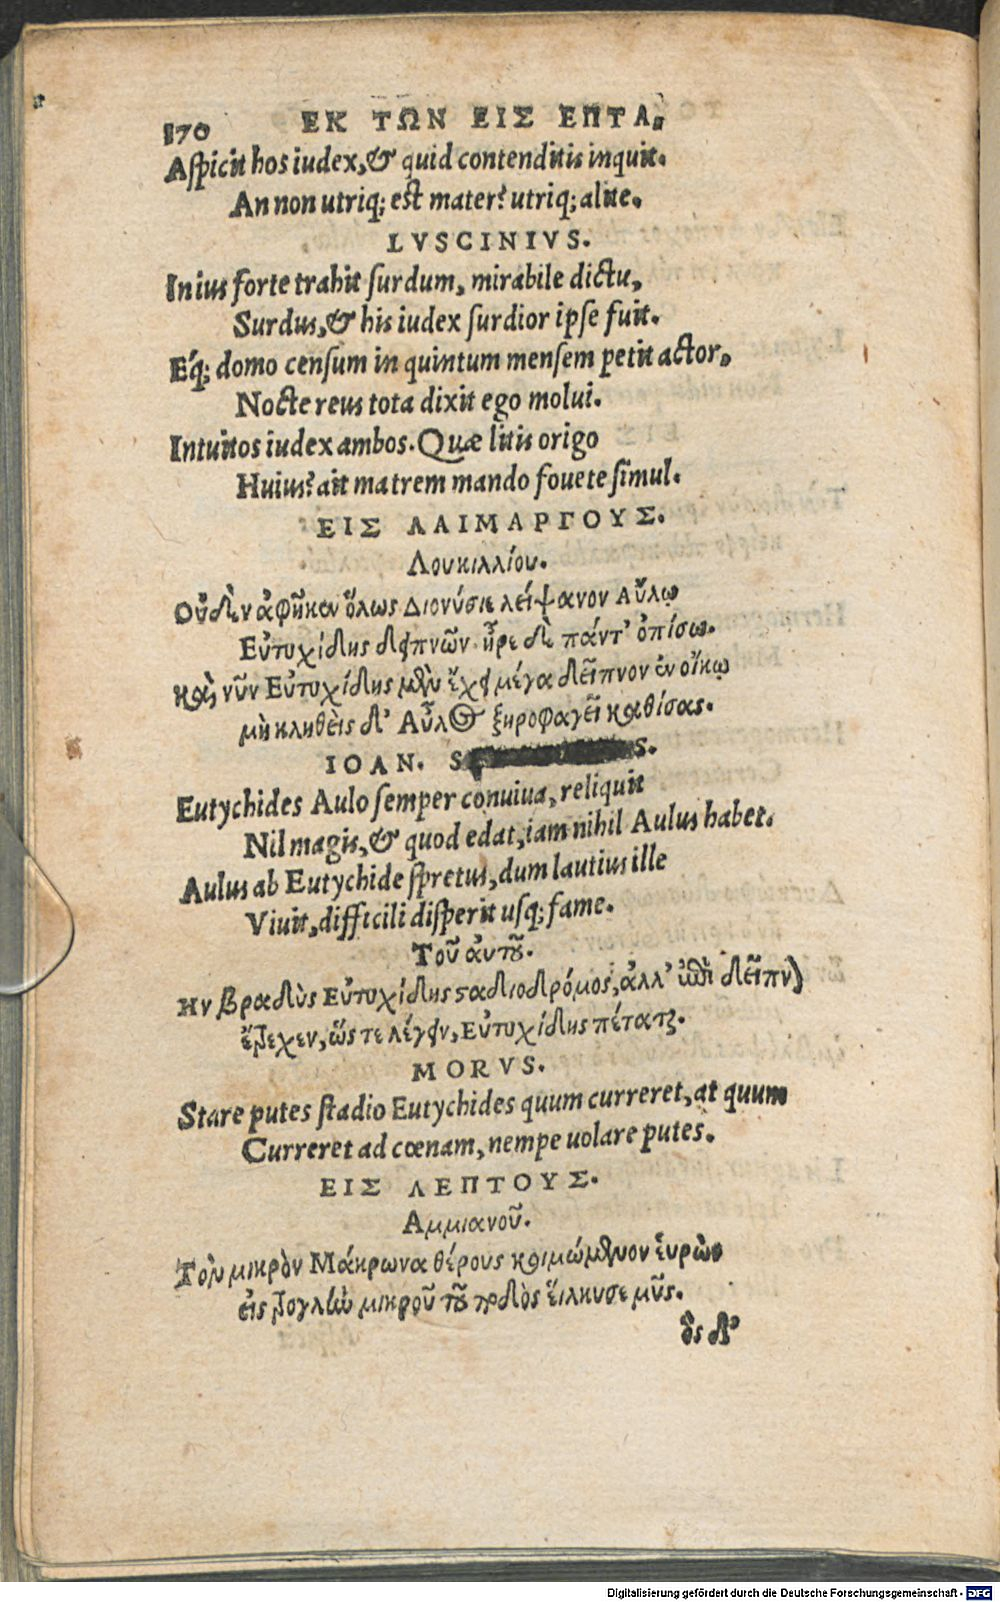 170 ΕΚ ΤΩΝ ΕΙΣ ΕΠΤΑ.
Aſpicit hos iudex, & quid contenditis inquit.
An non utriq; eſt mater? utriq; alite.
LVSCINIVS.
In ius forte trahit ſurdum, mirabile dictu,
Surdus, & his iudex ſurdior ipſe fuit.
Eq́; domo cenſum in quintum menſem petit actor,
Nocte reus tota dixit ego molui.
Intuitos iudex ambos. Quæ litis origo
Huius? ait matrem mando fouete ſimul.
ΕΙΣ ΛΑΙΜΑΡΓΟΥΣ.
Λουκιλλίου.
Οὐδὲν ἀφῆκεν ὅλως Διονύσιε λείψανον Αὔλῳ
Εὐτυχίδης δειπνῶν· ἦρε δὲ πάντ' ὀπίσω.
καὶ νῦν Εὐτυχίδης μὲν ἔχει μέγα δεῖπνον ἐν οἴκῳ
μὴ κληθεὶς δ' Αὖλος ξηροφαγεῖ καθίσας.
IOAN. S S.
Eutychides Aulo ſemper conuiua, reliquit
Nil magis, & quod edat, iam nihil Aulus habet.
Aulus ab Eutychide ſpretus, dum lautius ille
Viuit, difficili diſperit uſq; fame.
Τοῦ ἀυτοῦ.
Ην βραδὺς Εὐτυχίδης σαδιοδρόμος, ἀλλ' ἐπὶ δεῖπνον
ἔτρεχεν, ὥς τε λέγειν, Εὐτυχίδης πέταται.
MORVS.
Stare putes ſtadio Eutychides quum curreret, at quum
Curreret ad cœnam, nempe uolare putes.
ΕΙΣ ΛΕΠΤΟΥΣ.
Αμμιανοῦ.
Τὸν μικρὸν Μάκρωνα θέρους κοιμώμενον εὑρὼν
εἰς τρογλίω μικροῦ τοῦ ποδὸς εἵλκυσε μῦς.
ὃς δ'
Digitalisierung gefördert durch die Deutsche Forschungsgemeinschaft - DFG